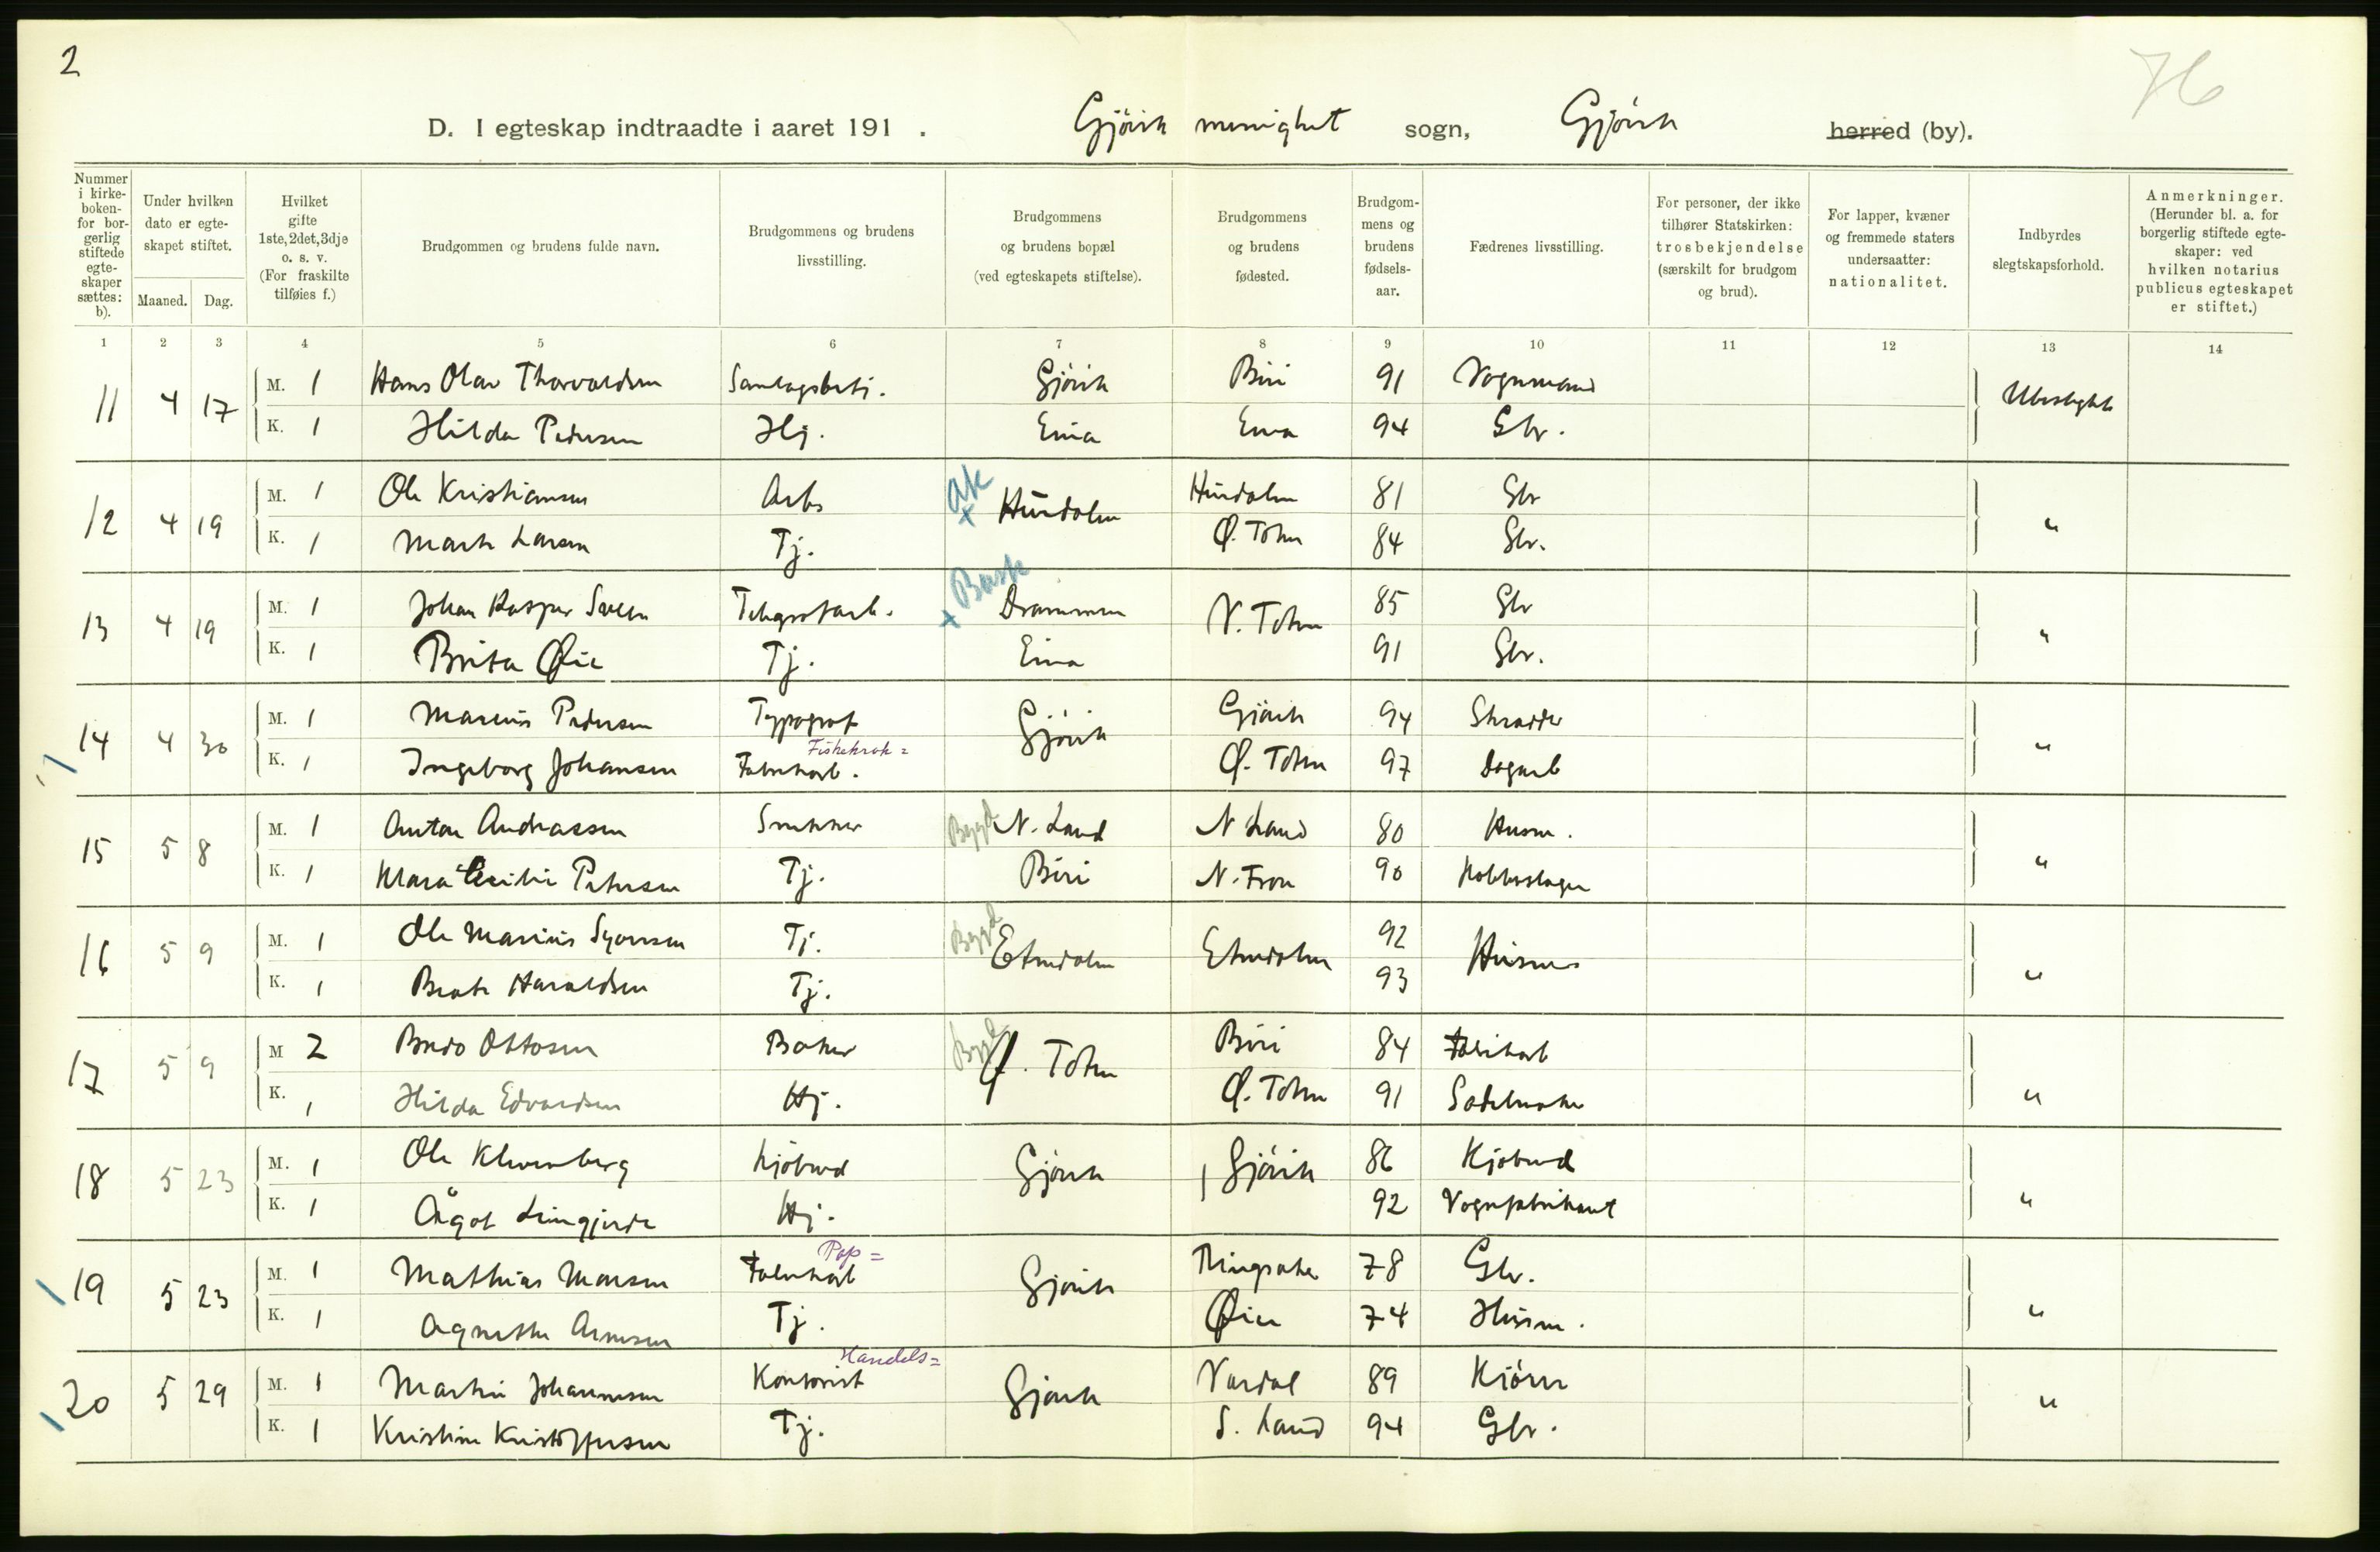 2
76
D. I egteskap indtraadte i aaret 191 . Gjövik menighet sogn, Gjövik herred (by).
Nummer i kirke-boken- for bor-gerlig stiftede egte-skaper sættes: b).
Under hvilken dato er egte-skapet stiftet.
Maaned. Dag.
Hvilket gifte 1ste, 2det, 3dje o. s. v. (For fraskilte tilføies f.)
Brudgommen og brudens fulde navn.
Brudgommens og brudens livsstilling.
Brudgommens og brudens bopæl (ved egteskapets stiftelse).
Brudgommens og brudens fødested.
Brudgom-mens og brudens fødsels-aar.
Fædrenes livsstilling.
For personer, der ikke tilhører Statskirken: trosbekjendelse (særskilt for brudgom og brud).
For lapper, kvæner og fremmede staters undersaatter: nationalitet.
Indbyrdes slegtskapsforhold.
Anmerkninger. (Herunder bl. a. for borgerlig stiftede egte-skaper: ved hvilken notarius publicus egteskapet er stiftet.)
1 2 3 4 5 6 7 8 9 10 11 12 13 14
11 4 17 M. 1 Hans Olav Thorvaldsen Samlagsbetj. Gjövik Biri 91 Vognmand Ubeslegtet
K. 1 Hilda Pedersen Hj. Eina Eina 94 Gbr.
12 4 19 M. 1 Ole Kristiansen Arb. Ak x Hurdalen Hurdalen 81 Gbr "
K. 1 Marte Larsen Tj. Ø. Toten 84 Gbr.
13 4 19 M. 1 Johan Kaspar Sveen Telegrafarb. x Busk Drammen V. Toten 85 Gbr "
K. 1 Brita Øie Tj. Eina 91 Gbr.
14 4 30 M. 1 Marius Pedersen Typograf Gjövik Gjövik 94 Skrædder "
K. 1 Ingeborg Johansen Fiskekrok= Fabrikarb. Ø. Toten 97 Dagarb
15 5 8 M. 1 Anton Andreassen Snekker Bygd N. Land N Land 80 Husm. "
K. 1 Klara Cecilie Petersen Tj. Biri N. Fron 90 Kobberslager
16 5 9 M. 1 Ole Marius Tj. Bygd Etnedalen Etnedalen 92 Husmn "
K. 1 Beate Haraldsen Tj. 93
17 5 9 M 2 Bredo Ottosen Baker Bygd Ø. Toten Biri 84 Fabrikarb "
K. 1 Hilda Edvardsen Hj. Ø. Toten 91 Sadelmaker
18 5 23 M. 1 Ole Klevenberg Kjöbmd Gjövik Gjövik 86 Kjöbmd "
K. 1 Ågot Leingjerde Hj. 92 Vognfabrikant
19 5 23 M. 1 Mathias Monsen Pap= Fabrikarb Gjövik Ringsaker 78 Gbr. "
K. 1 Agnethe Arnesen Tj. Øier 74 Husm.
20 5 29 M. 1 Martin Johannesen Handels= Kontorist Gjövik Vardal 89 Kjörer "
K. 1 Kristine Kristoffersen Tj. S. Land 94 Gbr.